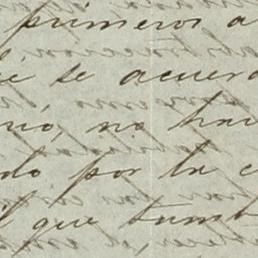 primeros a
se acuerd
no ha
do por la c
l que tumb